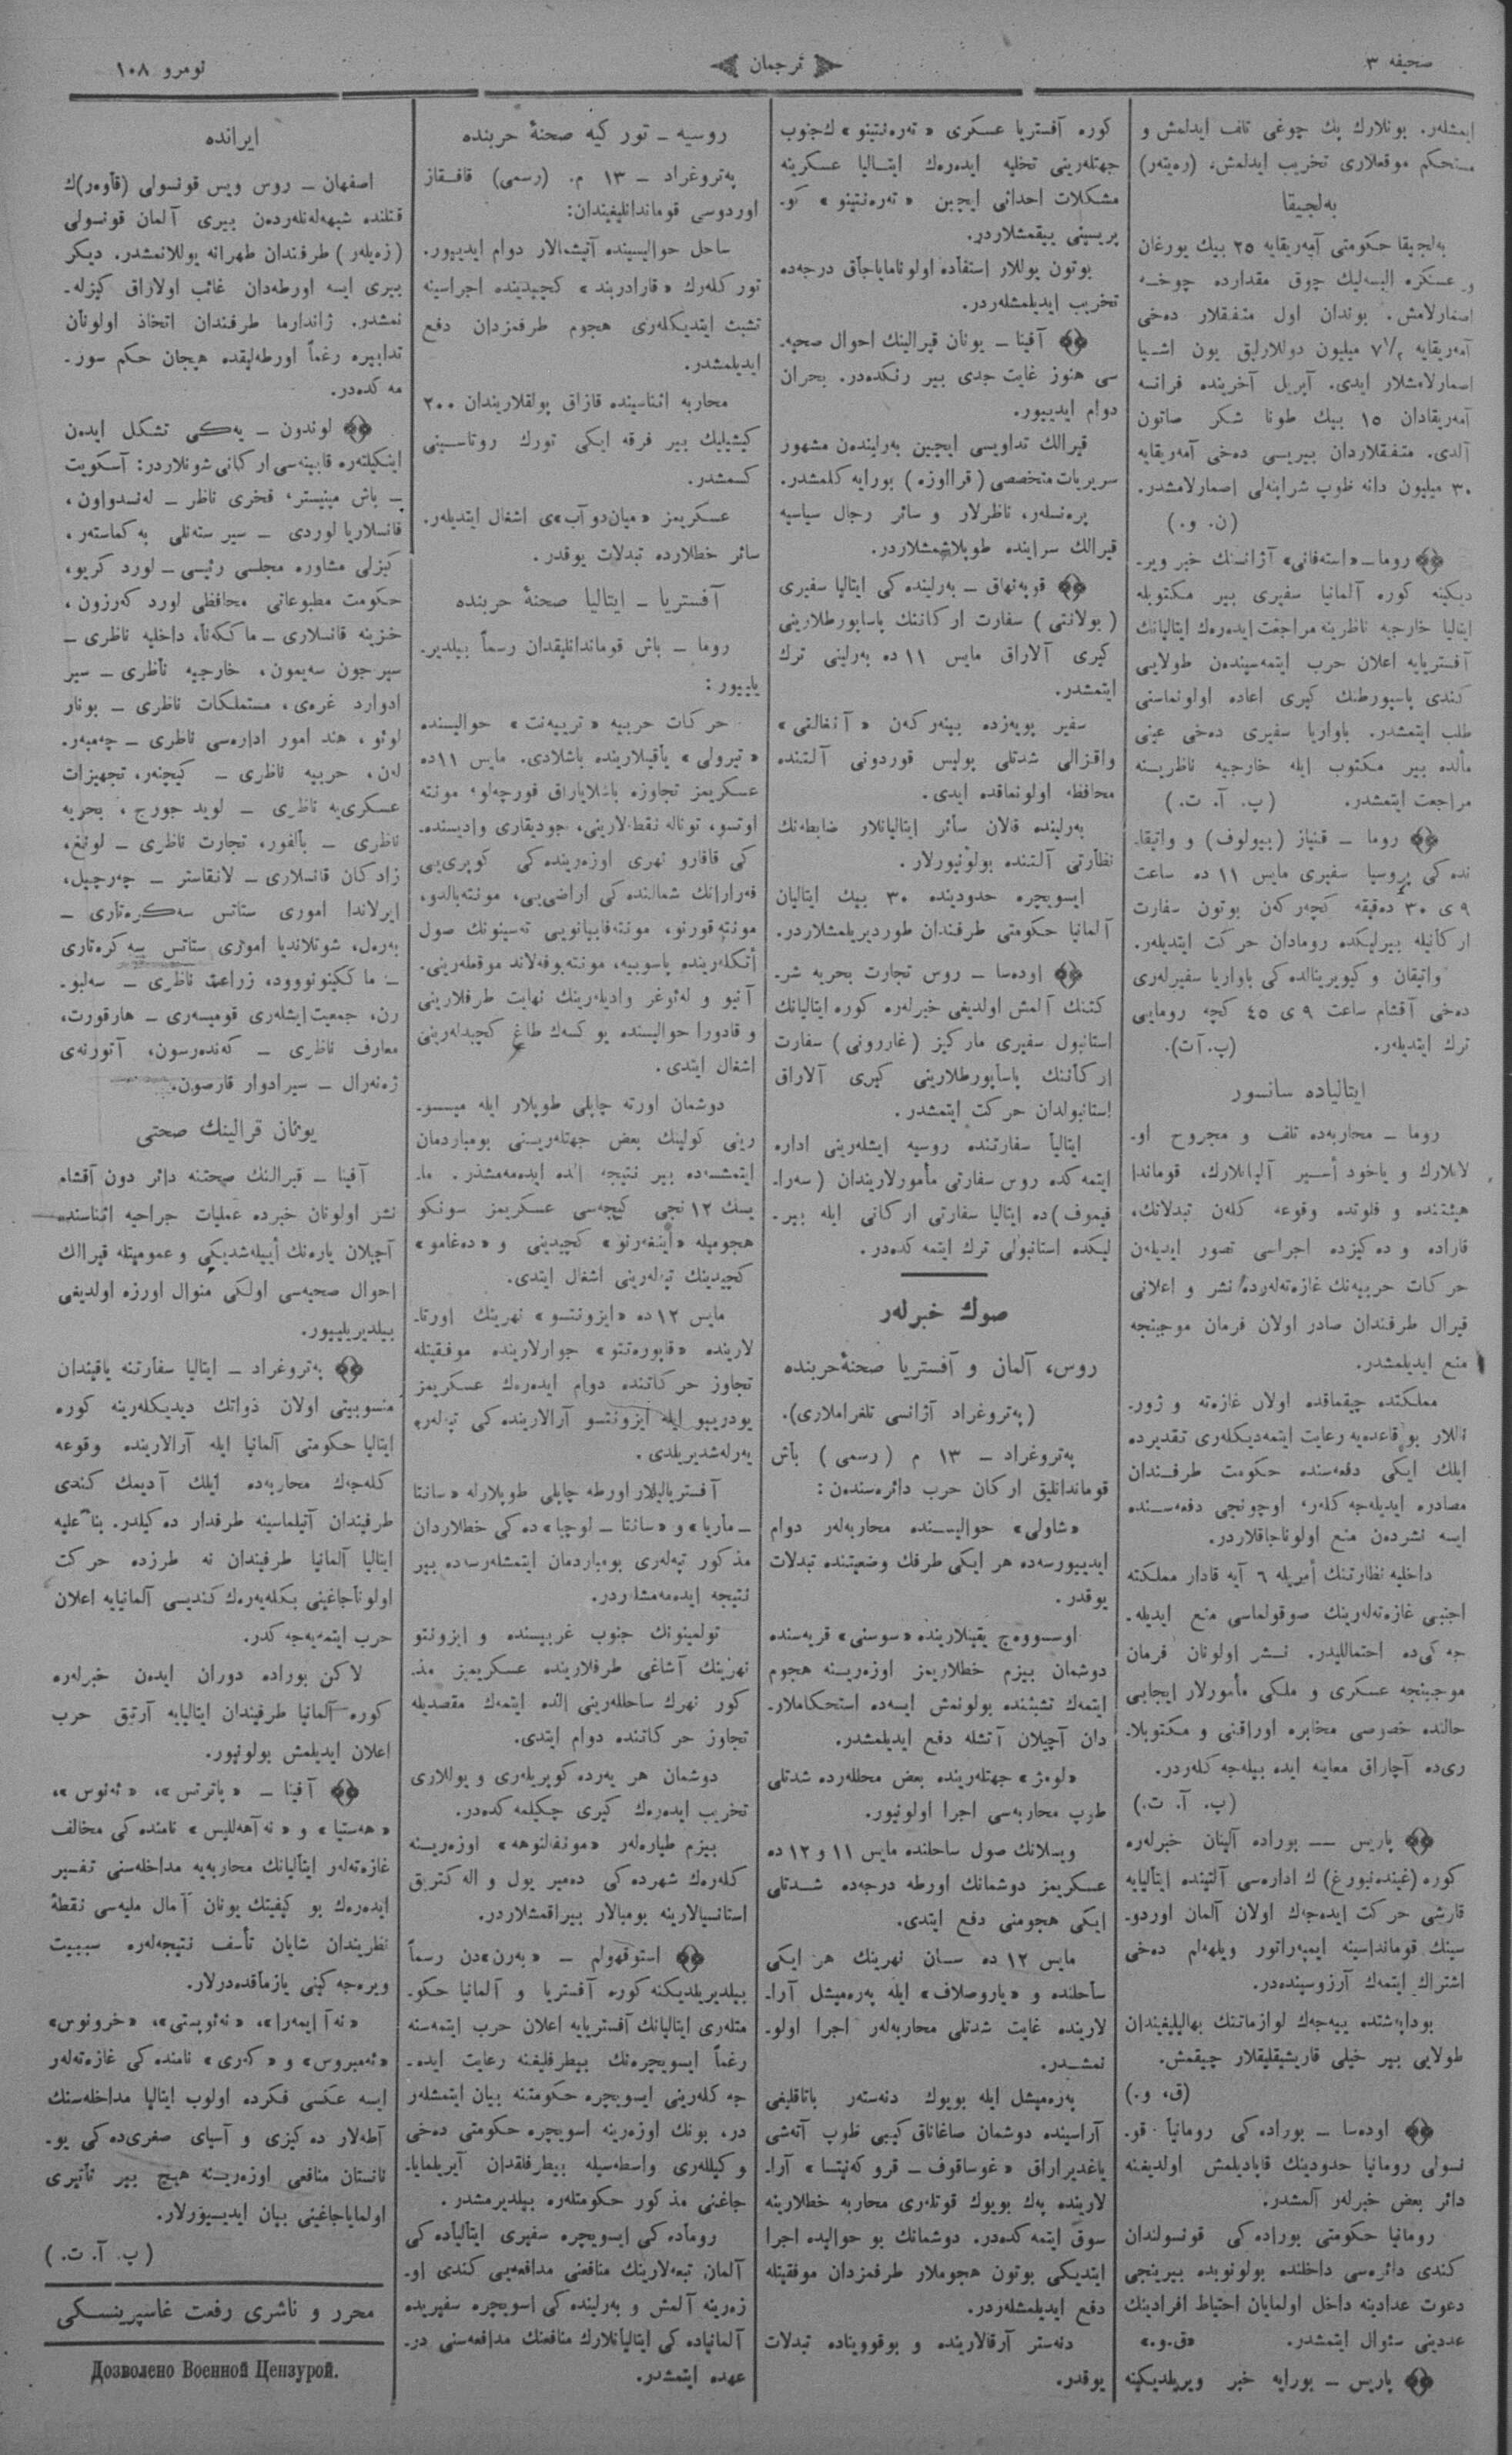 صحیفه ٣
ترجمان
نومرو ١٠٨
ایمشله‌ر. بونلارك پك چوغی تلف ایدلمش و
مستحكم موقعلاری تخریب ایدلمش، (ره‌یته‌ر)
به‌لجیقا
به‌لجیقا حكومتی آمه‌ریقایه ٢٥ بیك یورغان
و عسكره البسه‌لیك چوق مقدارده چوخه
اصمارلامش. بوندان اول متفقلار ده‌خی
میلیون دوللارلیق یون اشیا
اصمارلامشلار ایدی. آپریل آخرینده فرانسه
آمه‌ریقادان ١٥ بیك طونا شكر صاتون
آلدی. متفقلاردان بیریسی ده‌خی آمه‌ریقایه
٣٠ میلیون دانه طوب شراپنه‌لی اصمارلامشدر.
(ن. و.)
روما ـ «استه‌فانی» آژانسنك خبر ویر-
دیكینه كوره آلمانیا سفیری بیر مكتوبله
ایتالیا خارجیه ناظرینه مراجعت ایده‌رك ایتالیانك
آفستریایه اعلان حرب ایتمه‌سیندن طولایی
كندی پاسپورطنك كیری اعاده اولونماسنی
طلب ایتمشدر. باواریا سفیری ده‌خی عینی
مألده بیر مكتوب ایله خارجیه ناظرینه
مراجعت ایتمشدر. (پ. آ. ت.)
روما ـ قنیاز (بیولوف) و واتیقا-
نده‌كی پروسیا سفیری مایس ١١ ده ساعت
٩ی ٣٠ ده‌قیقه كچه‌ركه‌ن بوتون سفارت
اركانیله بیرلیكده رومادان حركت ایتدیله‌ر.
واتیقان و كیویرینالده‌كی باواریا سفیرله‌ری
ده‌خی آقشام ساعت ٩ی ٤٥ كچه رومایی
ترك ایتدیله‌ر. (پ. آ ت).
ایتالیاده سانسور
روما ـ محاربه‌ده تلف و مجروح او-
لانلارك و یاخود أسیر آلیانلارك، قوماندا
هیئتنده و فلوتده وقوعه كله‌ن تبدلاتك،
قاراده و ده‌كیزده اجراسی تصور ایدیله‌ن
حركات حربیه‌نك غازه‌ته‌له‌رده نشر و اعلانی
قیرال طرفندان صادر اولان فرمان موجبنجه
منع ایدیلمشدر.
مملكتده چیقماقده اولان غازه‌ته و ژور-
ناللار بو قاعده‌یه رعایت ایتمه‌دیكله‌ری تقدیرده
ایلك ایكی دفعه‌سنده حكومت طرفندان
مصادره ایدیله‌جه‌كله‌ر، اوچونجی دفعه‌سنده
ایسه نشردن منع اولوناجاقلاردر.
داخلیه نظارتنك أمریله ٦ آیه قادار مملكته
اجنبی غازه‌ته‌له‌رینك صوقولماسی منع ایدیله-
جه‌كی‌ده احتماللیدر. نشر اولونان فرمان
موجبنجه عسكری و ملكی مأمورلار ایجابی
حالنده خصوصی مخابره اوراقنی و مكتوبلا-
ری‌ده آچاراق معاینه ایده بیله‌جه‌كله‌ردر.
(پ. آ. ت.)
پاریس ــ بوراده آلینان خبرله‌ره
كوره (غینده‌نبورغ) ك اداره‌سی آلتینده ایتالیایه
قارشی حركت ایده‌جه‌ك اولان آلمان اوردو-
سینك قومانداسینه ایمپه‌راتور ویلهه‌لم ده‌خی
اشتراك ایتمه‌ك آرزوسینده‌در.
بوداپه‌شتده ییه‌جه‌ك لوازماتنك بهالیلیغیندان
طولایی بیر خیلی قاریشیقلیقلار چیقمش.
(ق، و.)
اوده‌سا ـ بوراده‌كی رومانیا قو-
نسولی رومانیا حدودینك قاپادیلمش اولدیغنه
دائر بعض خبرله‌ر آلمشدر.
رومانیا حكومتی بوراده‌كی قونسولندان
كندی دائره‌سی داخلنده بولونوبده بیرینجی
دعوت عدادینه داخل اولمایان احتیاط افرادینك
عددینی سئوال ایتمشدر. «ق.و.»
پاریس ـ بورایه خبر ویریلدیكینه
كوره آفستریا عسكری «ته‌ره‌نتینو» ك جنوب
جهتله‌رینی تخلیه ایده‌ره‌ك ایتالیا عسكرینه
مشكلات احداثی ایچین «ته‌ره‌نتینو» كو-
پریسینی ییقمشلاردر.
بوتون یوللار استفاده اولونامایاجاق درجه‌ده
تخریب ایدیلمشله‌ردر.
آفینا ـ یونان قیرالینك احوال صحیه-
سی هنوز غایت جدی بیر رنكده‌در. بحران
دوام ایدییور.
قیرالك تداویسی ایچین به‌رلیندن مشهور
سریریات متخصصی (قرااوزه) بورایه كلمشدر.
پره‌نسله‌ر، ناظرلار و سائر رجال سیاسیه
قیرالك سراینده طوپلاشمشلاردر.
قوپه‌نهاق ـ به‌رلینده‌كی ایتالیا سفیری
(بولانتی) سفارت اركاننك پاساپورطلارینی
كیری آلاراق مایس ١١ ده به‌رلینی ترك
ایتمشدر.
سفیر پویه‌زده بینه‌ركه‌ن «آنغالتی»
واقزالی شدتلی پولیس قوردونی آلتنده
محافظه اولونماقده ایدی.
به‌رلینده قالان سائر ایتالیانلار ضابطه‌نك
نظارتی آلتنده بولونیورلار.
ایسویچره حدودینده ٣٠ بیك ایتالیان
آلمانیا حكومتی طرفندان طوردیریلمشلاردر.
اوده‌سا ـ روس تجارت بحریه شر-
كتنك آلمش اولدیغی خبرله‌ره كوره ایتالیانك
استانبول سفیری ماركیز (غاررونی) سفارت
اركاننك پاساپورطلارینی كیری آلاراق
استانبولدان حركت ایتمشدر.
ایتالیا سفارتنده روسیه ایشله‌رینی اداره
ایتمه‌كده روس سفارتی مأمورلاریندان (سه‌را-
فیموف) ده ایتالیا سفارتی اركانی ایله بیر-
لیكده استانبولی ترك ایتمه‌كده‌در.
صوك خبرله‌ر
روس، آلمان و آفستریا صحنهٔ حربنده
(په‌تروغراد آژانسی تلغراملاری).
په‌تروغراد ـ ١٣ م (رسمی) باش
قوماندانلیق اركان حرب دائره‌سندن:
«شاولی» حوالیسنده محاربه‌له‌ر دوام
ایدییورسه‌ده هر ایكی طرفك وضعیتنده تبدلات
یوقدر.
اوسووه‌چ یقینلارینده «سوسنی» قریه‌سنده
دوشمان بیزم خطلاریمز اوزه‌رینه هجوم
ایتمه‌ك تشبثنده بولونمش ایسه‌ده استحكاملار-
دان آچیلان آتشله دفع ایدیلمشدر.
«لوه‌ژ» جهتله‌رینده بعض محللـه‌رده شدتلی
طوپ محاربه‌سی اجرا اولونیور.
ویسلانك صول ساحلنده مایس ١١ و ١٢ ده
عسكریمز دوشمانك اورطه درجه‌ده شدتلی
ایكی هجومنی دفع ایتدی.
مایس ١٢ ده سان نهرینك هر ایكی
ساحلنده و «یاروصلاف» ایله په‌ره‌میشل آرا-
لارینده غایت شدتلی محاربه‌له‌ر اجرا اولو-
نمشدر.
په‌ره‌میشل ایله بویوك دنه‌ستر باتاقلیغی
آراسینده دوشمان صاغاناق كیبی طوپ آتشی
یاغدیراراق «غوساقوف ـ قروكه‌نیتسا» آرا-
لارینده پك بویوك قوتله‌ری محاربه خطلارینه
سوق ایتمه‌كده‌در. دوشمانك بو حوالیده اجرا
ایتدیكی بوتون هجوملار طرفمزدان موفقیتله
دفع ایدیلمشله‌ردر.
دنه‌ستر آرقالارینده و بوقوویناده تبدلات
یوقدر.
روسیه ـ توركیه صحنهٔ حربنده
په‌تروغراد ـ ١٣ م. (رسمی) قافقاز
اوردوسی قوماندانلیغیندان:
ساحل حوالیسینده آتیشمالار دوام ایدییور.
توركله‌رك «قارادربند» كچیدینده اجراسینه
تشبث ایتدیكله‌ری هجوم طرفمزدان دفع
ایدیلمشدر.
محاربه اثناسینده قازاق پولقلاریندان ٢٠٠
كیشیلیك بیر فرقه ایكی تورك روتاسینی
كسمشدر.
عسكریمز «میان‌دوآب»ی اشغال ایتدیله‌ر.
سائر خطلارده تبدلات یوقدر.
آفستریا ـ ایتالیا صحنهٔ حربنده
روما ـ باش قوماندانلیقدان رسماً بیلدیر-
یلییور:
حركات حربیه «ترییه‌نت» حوالیسنده
«تیرولی» یاقینلارینده باشلادی. مایس ١١ده
عسكریمز تجاوزه باشلایاراق فورچه‌لو، مونته
اوتسو، توناله نقطه‌لارینی، جودیقاری وادیسنده-
كی قافارو نهری اوزه‌رینده‌كی كوپری‌یی
فه‌رارانك شمالنده‌كی اراضی‌یی، مونته‌بالدو،
مونته قورنو، مونته‌فابیانویی ته‌سینونك صول
أتكله‌رینده پاسوبیه، مونته‌بوفه‌لاند موقعله‌رینی-
آنیو و له‌ئوغر وادیله‌رینك نهایت طرفلارینی
و قادورا حوالیسنده یوكسك طاغ كچیدله‌رینی
اشغال ایتدی.
دوشمان اورته چاپلی طوپلار ایله میسو-
رینی كولینك بعض جهتله‌ریسنی بومباردمان
ایتمشسه‌ده بیر نتیجه الده ایده‌مه‌مشدر. ما-
یسك ١٢ نجی كیجه‌سی عسكریمز سونكو
هجومیله «اینفه‌رنو» كچیدینی و «ده‌غامو»
كچیدینك تپه‌له‌رینی اشغال ایتدی.
مایس ١٢ ده «ایزونتسو» نهرینك اورتا-
لارینده «قاپوره‌تتو» جوارلارینده موفقیتله
تجاوز حركاتنده دوام ایده‌ره‌ك عسكریمز
یودریبو ایله ایزونتسو آرالارینده‌كی تپه‌له‌ره
یه‌رله‌شدیریلدی.
آفستریالیلار اورطه چاپلی طوپلارله «سانتا
ـ ماریا» و «سانتا ـ لوچیا» ده‌كی خطلاردان
مذكور تپه‌له‌ری بومباردمان ایتمشله‌رسه‌ده بیر
نتیجه ایده‌مه‌مشلاردر.
تولمینونك جنوب غربیسنده و ایزونتو
نهرینك آشاغی طرفلارینده عسكریمیز مذ-
كور نهرك ساحللـه‌رینی الده ایتمه‌ك مقصدیله
تجاوز حركاتنده دوام ایتدی.
دوشمان هر یه‌رده كوپریله‌ری و یوللاری
تخریب ایده‌ره‌ك كیری چكیلمه‌كده‌در.
بیزم طیاره‌له‌ر «مونفالنوهه» اوزه‌رینه
كله‌ره‌ك شهرده‌كی ده‌میر یول و اله‌كتریق
استانسیالارینه بومبالار بیراقمشلاردر.
استوقهولم ـ «به‌رن»دن رسماً
بیلدیریلدیكنه كوره آفستریا و آلمانیا حكو-
متله‌ری ایتالیانك آفستریایه اعلان حرب ایتمه‌سنه
رغماً ایسویچره‌نك بیطرفلیغنه رعایت ایده-
جه‌كله‌رینی ایسویچره حكومتنه بیان ایتمشله‌ر
در، بونك اوزه‌رینه اسویچره حكومتی ده‌خی
وكیللـه‌ری واسطه‌سیله بیطرفلقدان آیریلمایا-
جاغنی مذكور حكومتله‌ره بیلدیرمشدر.
روماده‌كی ایسویچره سفیری ایتالیاده‌كی
آلمان تبعه‌لارینك منافعنی مدافعه‌یی كندی او-
زه‌رینه آلمش و به‌رلینده‌كی اسویچره سفیریده
آلمانیاده‌كی ایتالیانلارك منافعنك مدافعه‌سنی در-
عهده ایتمشدر.
ایرانده
اصفهان ـ روس ویس قونسولی (قاوه‌ر)ك
قتلنده شبهه‌له‌نله‌ردن بیری آلمان قونسولی
(زه‌یله‌ر) طرفندان طهرانه یوللانمشدر. دیكر
بیری ایسه اورطه‌دان غائب اولاراق كیزله-
نمشدر. ژاندارما طرفندان اتخاذ اولونان
تدابیره رغماً اورطه‌لیقده هیجان حكم سور-
مه‌كده‌در.
لوندون ـ یه‌كی تشكل ایدن
اینكیلتره قابینه‌سی اركانی شونلاردر: آسكویت
ـ باش مینیستر، فخری ناظر ـ له‌نسدواون،
قانسلاریا لوردی ـ سیر سته‌نلی به‌كماسته‌ر،
كیزلی مشاوره مجلسی رئیسی ـ لورد كریو،
حكومت مطبوعاتی محافظی لورد كه‌رزون،
خزینه قانسلاری ـ ماككه‌نا، داخلیه ناظری ـ
سیر جون سه‌یمون، خارجیه ناظری ـ سیر
ادوارد غره‌ی، مستملكات ناظری ـ بونار
لوئو، هند امور اداره‌سی ناظری ـ چه‌مبه‌ر-
له‌ن، حربیه ناظری ـ كیچنه‌ر، تجهیزات
عسكری‌یه ناظری ـ لوید جورج، بحریه
ناظری ـ بالفور، تجارت ناظری ـ لونغ،
زادكان قانسلاری ـ لانقاستر ـ چه‌رچیل،
ایرلاندا اموری ستاتس سه‌كره‌تاری ـ
به‌ره‌ل، شوتلاندیا اموری ستاتس سه‌كره‌تاری
ـ ماككینونوود، زراعت ناظری ـ سه‌لبو-
رن، جمعیت ایشله‌ری قومیسه‌ری ـ هارقورت،
معارف ناظری ـ كه‌نده‌رسون، آتورنه‌ی
ژه‌نه‌رال ـ سیر ادوار قارصون.
یونان قرالینك صحتی
آفینا ـ قیرالنك صحتنه دائر دون آقشام
نشر اولونان خبرده عملیات جراحیه اثناسنده
آچیلان یاره‌نك أییله‌شدیكی و عمومیتله قیرالك
احوال صحیه‌سی اولكی منوال اوزره اولدیغی
بیلدیریلییور.
په‌تروغراد ـ ایتالیا سفارتنه یاقیندان
منسوبیتی اولان ذواتك دیدیكله‌رینه كوره
ایتالیا حكومتی آلمانیا ایله آرالارینده وقوعه
كله‌جه‌ك محاربه‌ده ایلك آدیمك كندی
طرفیندان آتیلماسینه طرفدار ده‌كیلدر. بناءً علیه
ایتالیا آلمانیا طرفیندان نه طرزده حركت
اولوناجاغینی بكله‌یه‌ره‌ك كندیسی آلمانیایه اعلان
حرب ایتمه‌یه‌جه‌كدر.
لاكن بوراده دوران ایدن خبرله‌ره
كوره آلمانیا طرفیندان ایتالیایه آرتیق حرب
اعلان ایدیلمش بولونیور.
آفینا ـ «پاترتس»، «نه‌ئوس»،
«هه‌ستیا» و «نه‌آهه‌للیس» نامنده‌كی مخالف
غازه‌ته‌له‌ر ایتالیانك محاربه‌یه مداخله‌سنی تفسیر
ایده‌ره‌ك بو كیفیتك یونان آمال ملیه‌سی نقطهٔ
نظریندان شایان تأسف نتیجه‌له‌ره سببیت
ویره‌جه‌كینی یازماقده‌درلار.
«نه‌آ ایمه‌را»، «نه‌ئوپستی»، «خرونوس»
«ئه‌مبروس» و «كه‌ری» نامنده‌كی غازه‌ته‌له‌ر
ایسه عكسی فكرده اولوب ایتالیا مداخله‌سنك
آطه‌لار ده‌كیزی و آسیای صغری‌ده‌كی یو-
نانستان منافعی اوزه‌رینه هیچ بیر تأثیری
اولمایاجاغینی بیان ایدییورلار.
(پ. آ. ت.)
محرر و ناشری رفعت غاسپرینسكی
Дозволено Военной Цензурой.